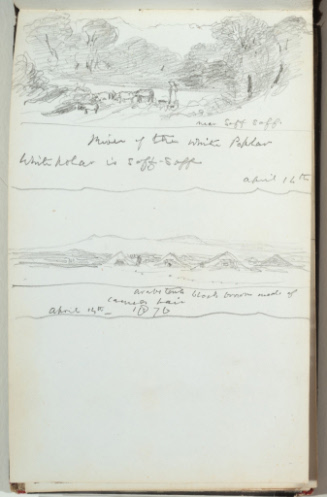 near Saff Saff
River of the White Poplar
White Poplar is Saff-Saff
April 16th
arab tents black brown made of
camels hair
April 16th 1876